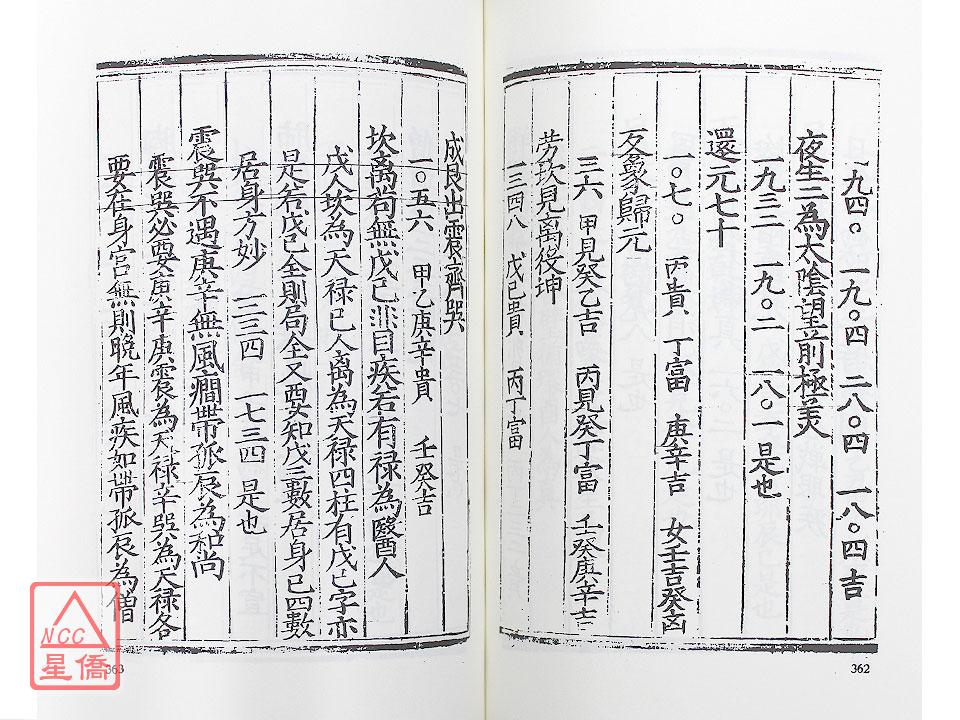 一九四〇 一九〇四 二八〇四 一八〇四吉
夜生二為太陰望前極美
一九三二 一九〇二 一八〇一是也
還元七十
一〇七〇 丙貴 丁富 庚辛吉 女壬吉癸凶
反象歸元
三六 甲見癸乙吉 丙見癸丁富 壬癸庚辛吉
劳坎見离役坤
一三四八 戊己貴 丙丁富
362
成艮出震齊巽
一〇五六 甲乙庚辛貴 壬癸吉
坎离苟無戊己非目疾若有禄為醫人
戊人坎為天禄己人离為天禄四柱有戊己字亦
是若戊己全則局全又要知戊三數居身己四數
居身方妙 二三四 一七三四是也
震巽不遇庚辛無風癇帶孤辰為和尚
震巽必要庚辛庚震為天禄辛巽為天禄各
要在身宮無則晚年風疾如帶孤辰為僧
363
NCC
星僑